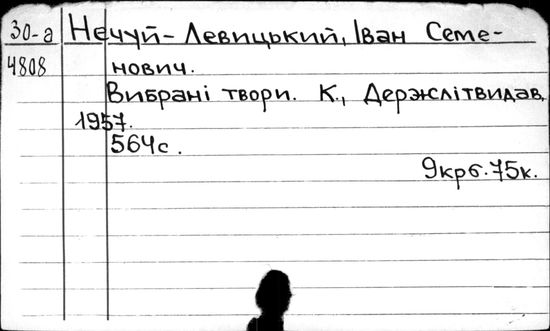 30-а Нечуй-Левицький, Іван Семе-
4808 нович.
Вибрані твори. К., Держлітвидав,
1957.
564с.
9крб.75к.